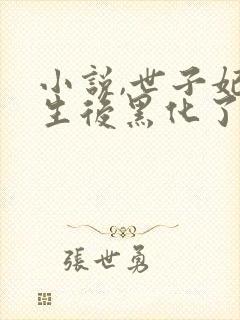 小説,世子妃
生後黑化了
張世勇